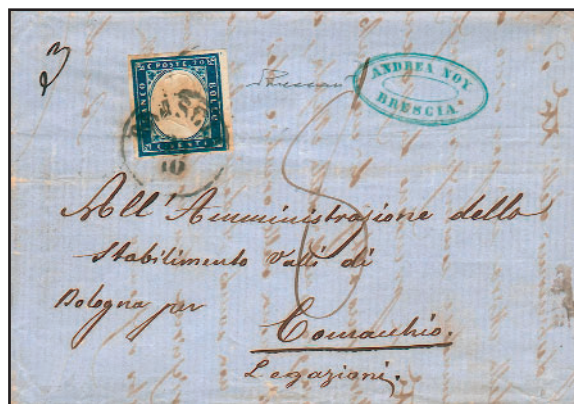 C. POSTE 20
FRANCO
BOLLO
C. VENTI
10
ANDREA NOY
BRESCIA
All'Amministrazione dello
Stabilimento Valli di
Bologna per
Comacchio.
Legazioni.